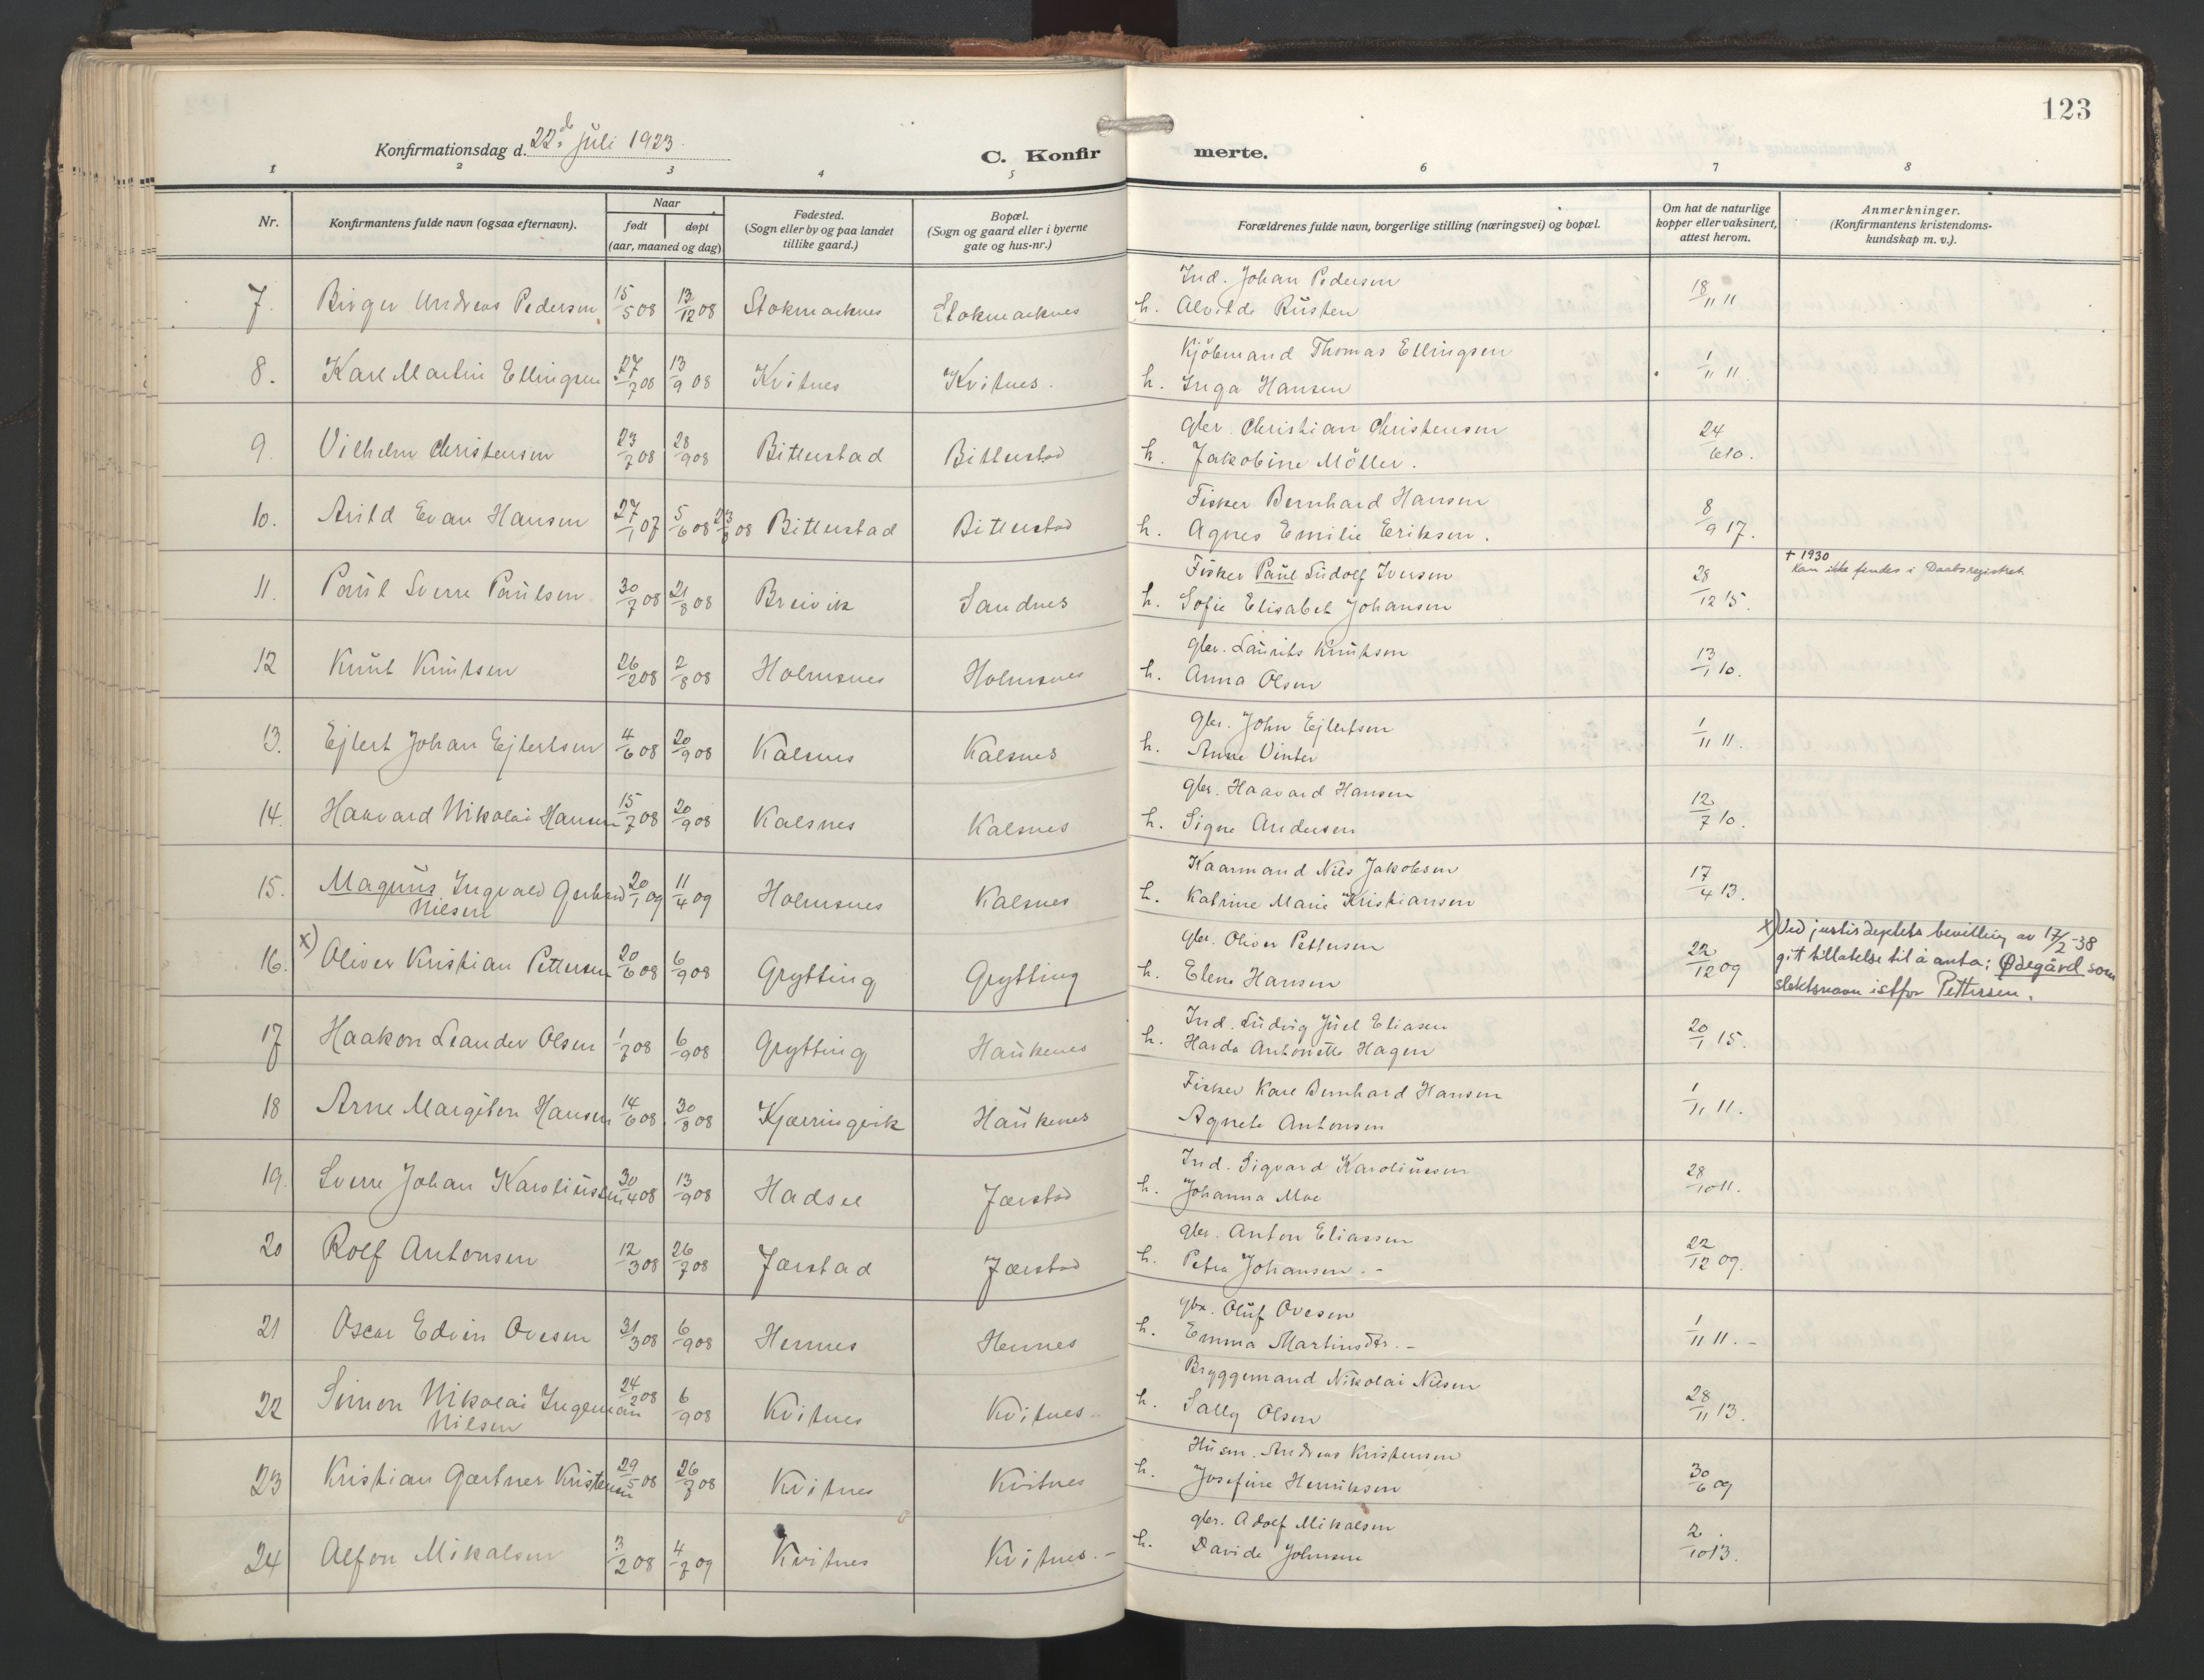 123
Konfirmationsdag d. 22de Juli 1923.
C. Konfirmerte.
1 2 3 4 5 6 7 8
Nr.
Konfirmantens fulde navn (ogsaa efternavn).
Naar
født døpt
(aar, maaned og dag)
Fødested.
(Sogn eller by og paa landet
tillike gaard.)
Bopæl.
(Sogn og gaard eller i byerne
gate og hus-nr.)
Forældrenes fulde navn, borgerlige stilling (næringsvei) og bopæl.
Om hat de naturlige
kopper eller vaksinert,
attest herom.
Anmerkninger.
(Konfirmantens kristendoms-
kundskap m. v.).
7. Birger Andreas Pedersen 15/5 08 13/12 08 Stokmarknes Stokmarknes Ind. Johan Pedersen 18/11 11
h. Alvilde Rüsten
8. Karl Martin Ellingsen 27/7 08 13/9 08 Kvitnes Kvitnes. Kjöbmand Thomas Ellingsen 1/11 11.
h. Inga Hansen
9. Vilhelm Christensen 23/7 08 28/9 08 Bitterstad Bitterstad gbr. Christian Christensen 24/6 10.
h. Jakobine Möller.
10. Arild Evan Hansen 27/1 07 5/6 08 23/8 08 Bitterstad Bitterstad Fisker Bernhard Hansen 8/9 17.
h. Agnes Emilie Eriksen.
11. Paül Sverre Paülsen 30/7 08 21/8 08 Breivik Sandnes Fisker Paül Lüdolf Iversen 28/12 15. † 1930
Kan ikke findes i Daabsregistret
h. Sofie Elisabet Johansen
12 Knüt Knütsen 26/2 08 2/8 08 Holmsnes Holmsnes gbr. Laürits Knütsen 13/1 10.
h. Anna Olsen
13. Ejlert Johan Ejlertsen 4/6 08 20/9 08 Kalsnes Kalsnes gbr. John Ejlertsen 1/11 11.
h. Anne Vinter
14. Haavard Nikolai Hansen 15/7 08 20/9 08 Kalsnes Kalsnes gbr. Haavard Hansen 12/7 10.
h. Signe Andersen
15. Magnüs Ingvald Gerhard 20/1 09 11/4 09 Holmsnes Kalsnes Kaarmand Nils Jakobsen 17/4 13.
Nilsen
h. Katrine Marie Kristiansen
16. x) Oliver Kristian Pettersen 20/6 08 6/9 08 Grytting Grytting gbr. Oliver Pettersen 22/12 09
h. Elene Hansen
x) Ved justisdeptets bevilling av 17/2-38
gitt tillatelse til å anta: Ødegård som
slektsnavn istfor Pettersen.
17 Haakon Leander Olsen 1/7 08 6/9 08 Grytting Haükenes Ind. Lüdvig Jüel Eliasen 20/1 15.
h. Harda Antonette Hagen
18 Arne Margiton Hansen 14/6 08 30/8 08 Kjærringvik Haükenes Fisker Karl Bernhard Hansen 1/11 11.
Agnete Antonsen
19. Sverre Johan Karoliüssen 30/4 08 13/9 08 Hadsel Jærstad Ind. Sigvard Karoliüssen 28/10 11.
h. Johanna Moe
20 Rolf Antonsen 12/3 08 26/7 08 Jærstad Jærstad gbr. Anton Eliassen 22/12 09.
h. Petra Johansen. -
21 Oscar Edvin Ovesen 31/3 08 6/9 08 Hennes Hennes gbr. Olüf Ovesen 1/11 11. -
h. Emma Martinsdtr. -
22 Simon Nikolai Ingeman 24/2 08 6/9 08 Kvitnes Kvitnes - Bryggemand Nikolai Nilsen 28/11 13.
Nilsen
h. Sally Olsen
23 Kristian Gærtner Kristensen 29/5 08 26/7 08 Kvitnes Kvitnes Hüsm. Andreas Kristensen 30/6 09
h. Josefine Henriksen
24 Alfon Mikalsen 3/2 08 4/7 09 Kvitnes Kvitnes. - gbr. Adolf Mikalsen 2/10 13.
h. Davide Johnsen